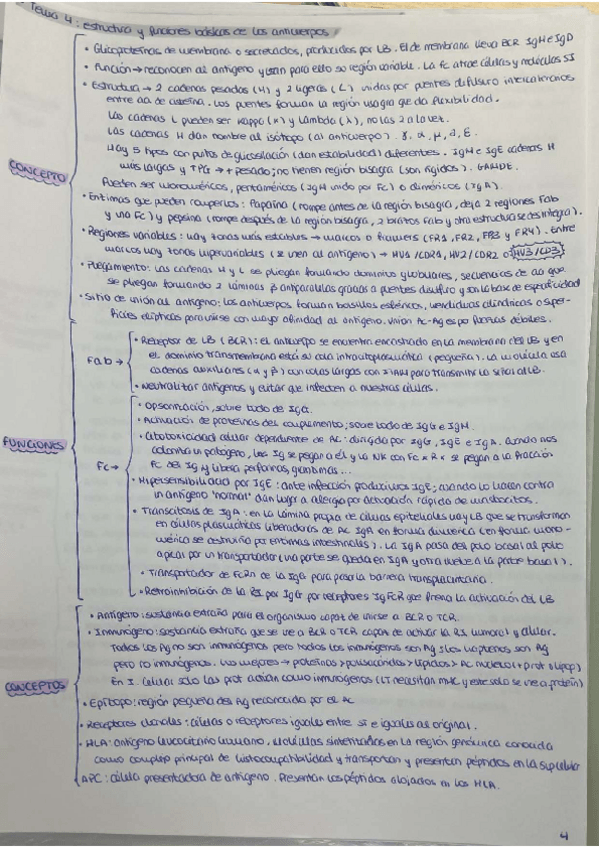 Tema 4: estructura y funciones básicas de los anticuerpos
CONCEPTO
· Glicoproteínas de membrana o secretados, producidos por LB. El de membrana lleva BCR IgM e IgD
· Función → reconocen al antígeno y usan para ello su región variable. La Fc atrae células y moléculas SI
· Estructura → 2 cadenas pesadas (H) y 2 ligeras (L) unidas por puentes disulfuro intercatenarios
entre aa de cisteína. Los puentes forman la región bisagra que da flexibilidad.
Las cadenas L pueden ser Kappa (κ) y Lambda (λ), no las 2 a la vez.
Las cadenas H dan nombre al isótopo (al anticuerpo). γ, α, μ, δ, ε.
Hay 5 tipos con puntos de glicosilación (dan estabilidad) diferentes. IgM e IgE cadenas H
más largas y → + pesado; no tienen región bisagra (son rígidos). GAMDE.
Pueden ser monoméricos, pentaméricos (IgM unido por Fc) o diméricos (IgA).
· Enzimas que pueden romperlos: Papaína (rompe antes de la región bisagra, deja 2 regiones Fab
y una Fc) y pepsina (rompe después de la región bisagra, 2 brazos Fab y otra estructura se desintegra).
· Regiones variables: hay zonas más estables → marcos o framers (FR1, FR2, FR3 y FR4). Entre
marcos hay zonas hipervariables (se unen al antígeno) → HV1/CDR1, HV2/CDR2 o HV3/CD3
· Plegamiento: las cadenas H y L se pliegan formando dominios globulares, secuencias de aa que
se pliegan formando 2 láminas β antiparalelas gracias a puentes disulfuro y son la base de especificidad
· Sitio de unión al antígeno: los anticuerpos forman bolsillos esféricos, hendiduras cilíndricas o super-
ficies elípticas para unirse con mayor afinidad al antígeno. Unión Ac-Ag es por fuerzas débiles.
FUNCIONES
Fab →
· Receptor de LB (BCR): el anticuerpo se encuentra encastrado en la membrana del LB y en
el dominio transmembrana está su cola intracitoplasmática (pequeña). La molécula usa
cadenas auxiliares (α y β) con colas largas con ITAM para transmitir la señal al LB.
· Neutralizar antígenos y evitar que infecten a nuestras células.
Fc →
· Opsonización, sobre todo de IgG.
· Activación de proteínas del complemento; sobre todo de IgG e IgM.
· Citotoxicidad celular dependiente de Ac: dirigida por IgG, IgE e IgA. Cuando nos
coloniza un patógeno, las Ig se pegan a él y la NK con se pegan a la fracción
Fc del Ig y libera perforinas, granzimas...
· Hipersensibilidad por IgE: ante infección producimos IgE; cuando lo hacen contra
un antígeno "normal" dan lugar a alergia por activación rápida de mastocitos.
· Transcitosis de IgA: en la lámina propia de células epiteliales hay LB que se transforman
en células plasmáticas liberadoras de Ac IgA en forma dimérica (en forma mono-
mérica se destruiría por enzimas intestinales). La IgA pasa del polo basal al polo
apical por un transportador (una parte se queda en IgA y otra vuelve a la parte basal).
· Transportador de FcRn de la IgG para pasar la barrera transplacentaria.
· Retroinhibición de la RI por IgG por receptores que frena la activación del LB
CONCEPTOS
· Antígeno: sustancia extraña para el organismo capaz de unirse a BCR o TCR.
· Inmunógeno: sustancia extraña que se une a BCR o TCR capaz de activar la RI humoral y celular.
Todos los Ag no son inmunógenos pero todos los inmunógenos son Ag. Los haptenos son Ag
pero no inmunógenos. Los mejores → proteínas > polisacáridos > lípidos > Ác nucleicos (+prot o lipop)
En I. Celular solo las prot actúan como inmunógenos (LT necesitan MHC y este solo se une a proteín)
· Epítopo: región pequeña del Ag reconocida por el Ac
· Receptores clonales: células o receptores iguales entre sí e iguales al original.
· HLA: antígeno leucocitario humano. Moléculas sintetizadas en la región genómica conocida
como complejo principal de histocompatibilidad y transportan y presentan péptidos en la sup celular
APC: célula presentadora de antígeno. Presentan los péptidos alojados en los HLA.
4